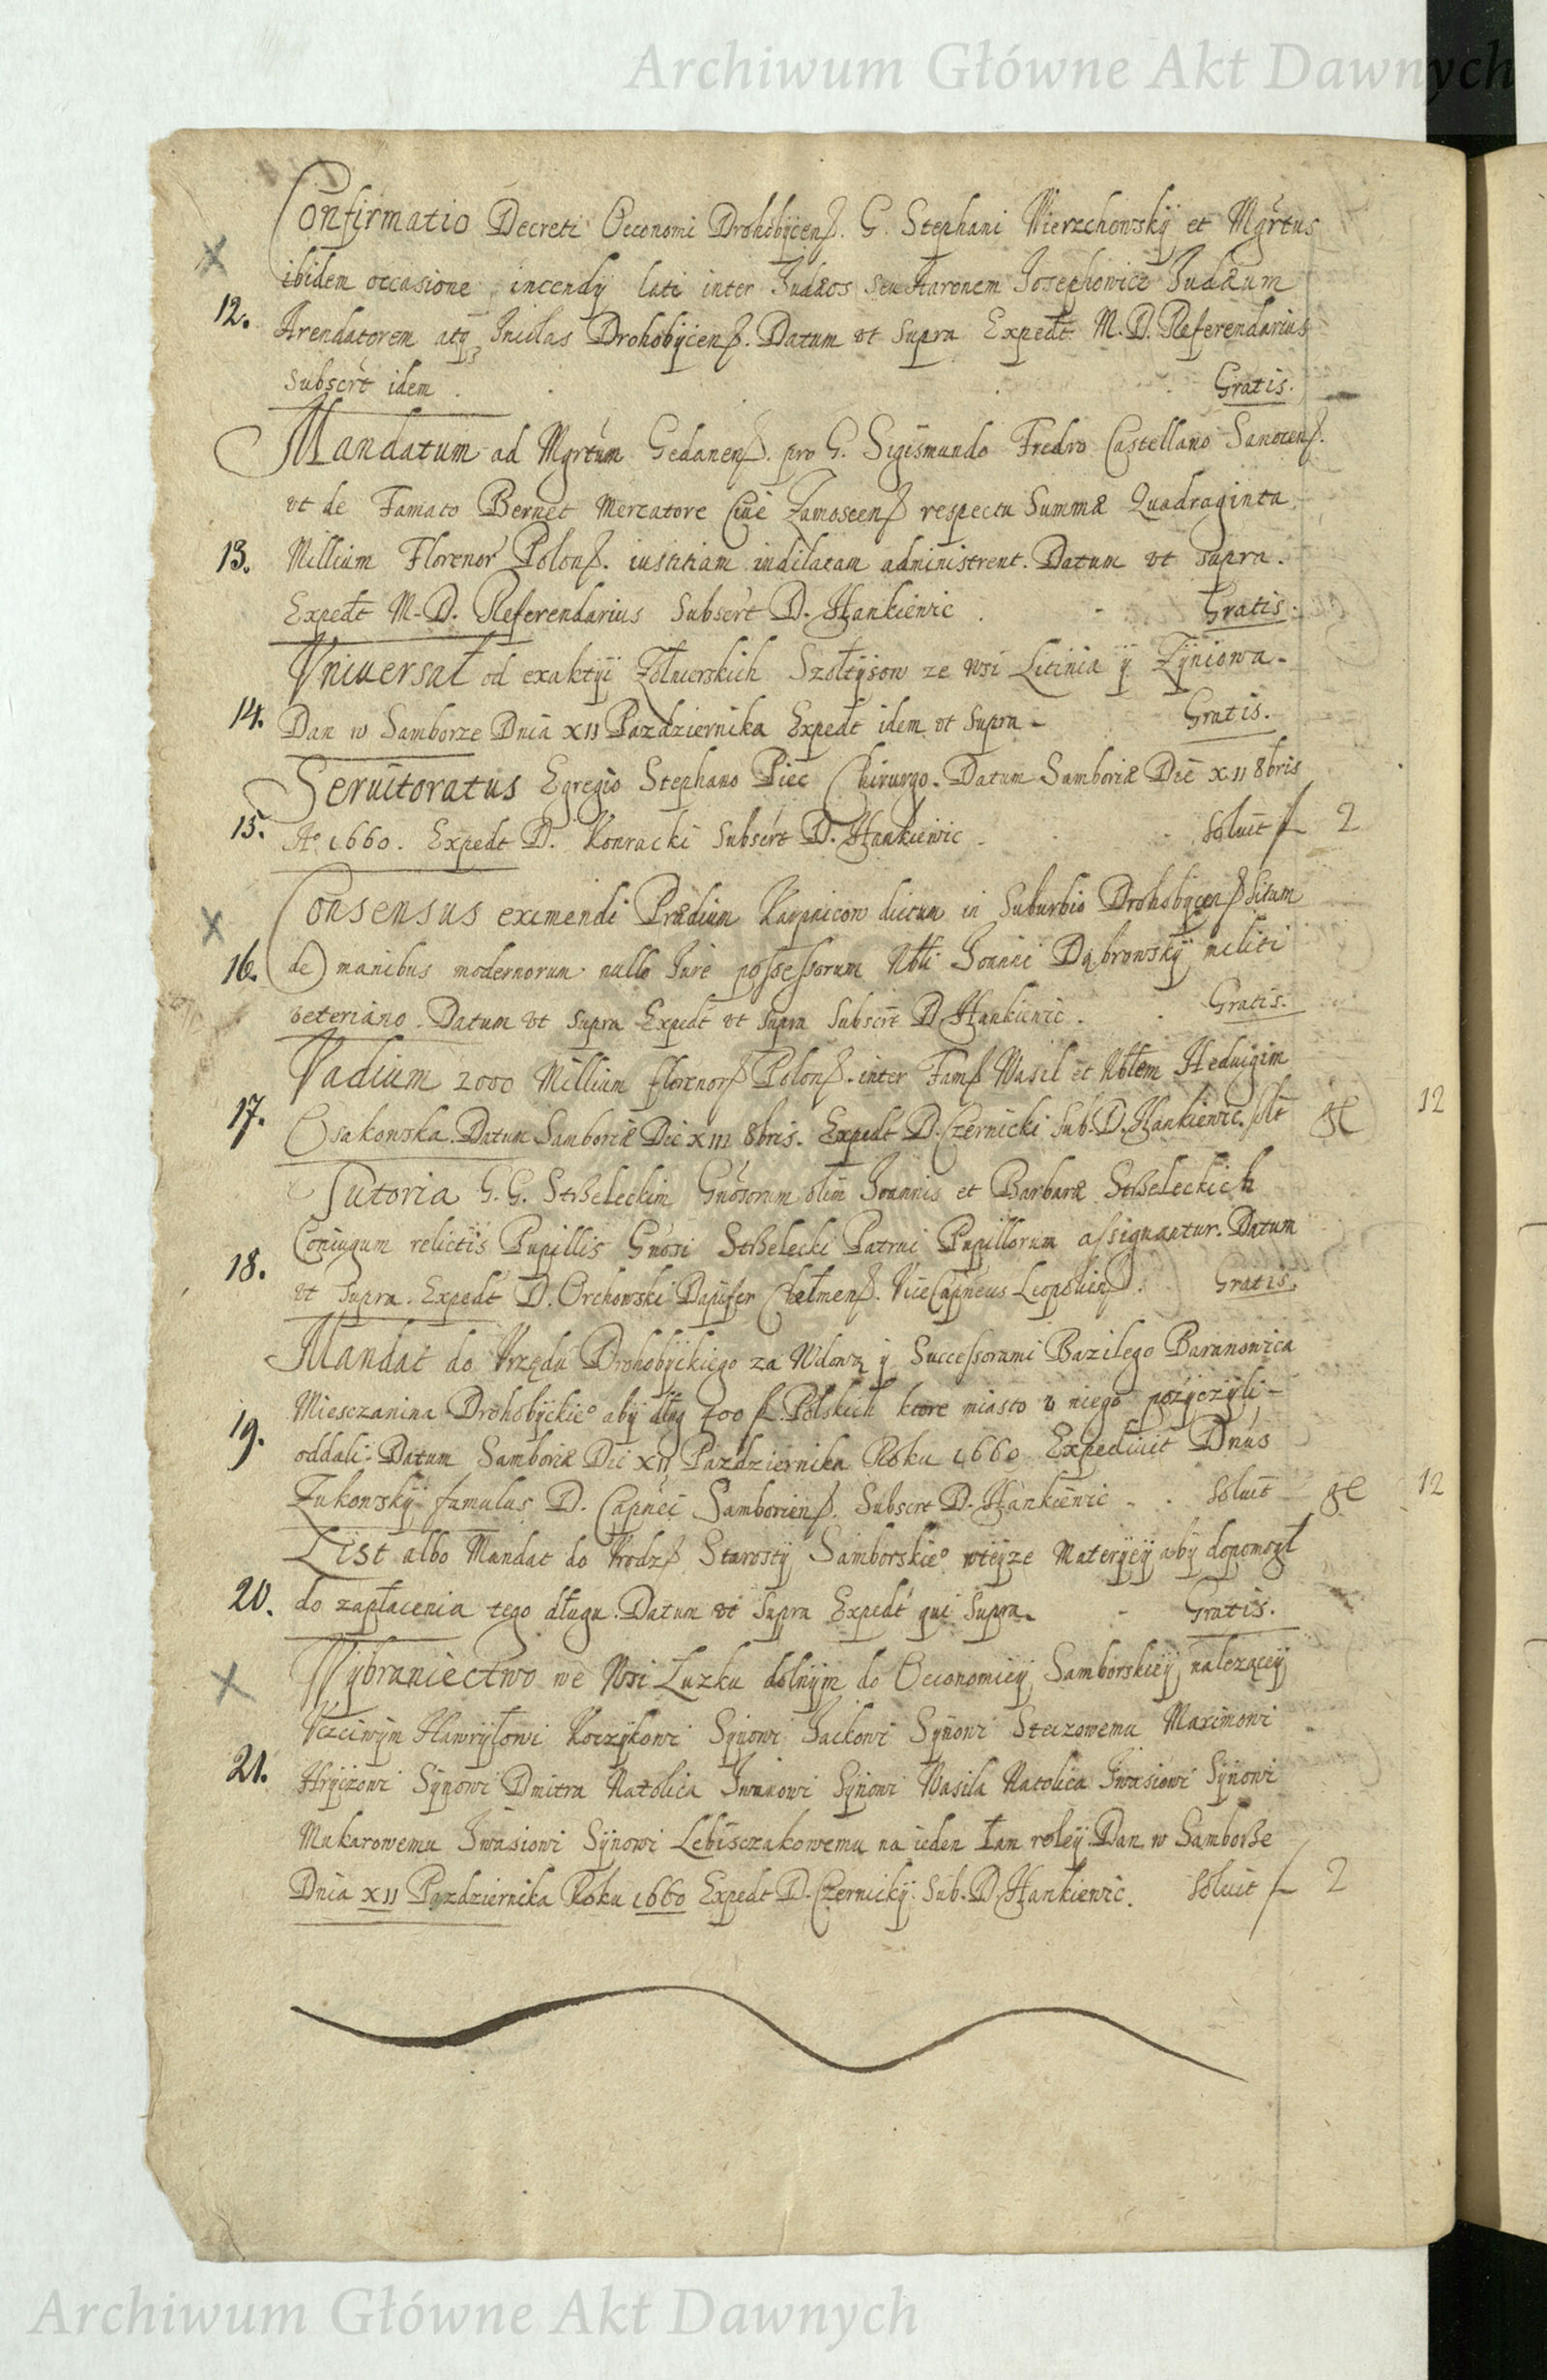 Archiwum Główne Akt Dawnych
Confirmatio Decreti Oeconomi Drohobÿcenß. G. Stephani Wierzchowskÿ et Mgrtus
ibidem occasione incendÿ lati inter Judæos seu Aaronem Josephowicz Judæum
12. Arendatorem atq3 Incolas Drohobÿcenß. Datum vt supra Expedt M. D. Referendarius
Subscrt idem . Gratis.
Mandatum ad Mgrtum Gedanenß. pro G. Sigismundo Fredro Castellano Sanocenß.
vt de Famato Bernet Mercatore Ciue Zamoscenß respectu Summæ Quadraginta
13. Millium Florenor Polonß. iustitiam indilatam administrent. Datum vt supra.
Expedt M. D. Referendarius Subscrt D. Hankiewic . - Gratis.
Vniuersał od exaktÿi Żołnierskich Szołtÿsow ze wsi Litinia ÿ Zÿniowa.
14. Dan w Samborze Dnia XII Pazdziernika Expedt idem vt supra - Gratis.
Seruitoratus Egregio Stephano Piec Chirurgo. Datum Samboriæ Die XII 8bris
15. Ao 1660. Expedt D. Konracki Subscrt D. Hankiewic . Soluit f 2
Consensus eximendi Prædium Karpnicow dictum in Suburbio Drohobÿcenß situm
16. de manibus modernorum nullo Jure possessorum Nbli Joanni Dąbrowskÿ militi
veteriano. Datum vt supra Expedt vt supra Subscrt D Hankiewic . . Gratis.
Vadium 2000 Millium florenorß Polonß. inter Famß Wasil et Nblem Heduigim
17. Osakowska. Datum Samboriæ Die XIII 8bris. Expedt D. Czernicki Sub. D. Hankiewic. slt gl 12
Tutoria G. G. Stßeleckim Gnosorum olim Joannis et Barbaræ Stßeleckich
Coniugum relictis Pupillis Gnosi Stßelecki Patrui Pupillorum assignantur. Datum
18. vt supra. Expedt D. Orchowski Dapifer Chełmenß. ViceCapneus Leopolienß. Gratis.
Mandat do Vrzędu Drohobÿckiego za Wdową ÿ Successorami Bazilego Baranowica
Miesczanina Drohobÿckieo abÿ dług 700 fl. Polskich ktore miasto v niego pożÿczÿli
19. oddali. Datum Samboriæ Die XII Pazdziernika Roku 1660 Expediuit Dnus
Żukowskÿ famulus D. Capnei Samborienß. Subscrt D. Hankiewic - . Soluit gl 12
List albo Mandat do Vrodzß Starostÿ Samborskieo wteÿze Materÿeÿ abÿ dopomogł
20. do zapłacenia tego długu. Datum vt supra Expedt qui supra. - Gratis.
Wÿbraniectwo we Wsi Luzku dolnÿm do Oeconomieÿ Samborskieÿ należąceÿ
Vczciwÿm Hawrÿłowi Koczÿkowi Sÿnowi Jackowi Sÿnowi Steczowemu Maximowi
21. Hrÿczowi Sÿnowi Dmitra Natolica Iwanowi Sÿnowi Wasila Natolica Iwasiowi Sÿnowi
Makarowemu Iwasiowi Sÿnowi Lebisczakowemu na ieden łan roleÿ Dan w Samborße
Dnia XII Pazdziernika Roku 1660 Expedt D. Czernickÿ Sub. D. Hankiewic. Soluit f 2
Archiwum Główne Akt Dawnych